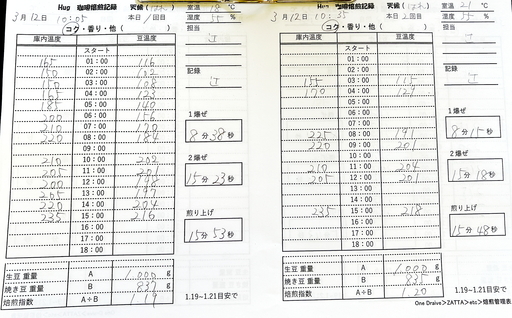 Hug 珈琲焙煎記録
天候
室温 ℃
3月12日 10:05
本日1回目
湿度 55 %
コク・香り・他
担当
庫内温度 豆温度
スタート
165 01:00 116
150 02:00 102
150 03:00 108
165 04:00 123
185 05:00 140
200 06:00 156
210 07:00
220 08:00
09:00
210 10:00 202
205 11:00
200 12:00
205 13:00 197
220 14:00 204
235 15:00 216
16:00
17:00
18:00
記録
1爆ぜ
8分38秒
2爆ぜ
15分23秒
煎り上げ
15分53秒
生豆重量 A 1,000 g
焼き豆重量 B 837 g
焙煎指数 A÷B 1.19
1.19~1.21目安で
Hug 珈琲焙煎記録
天候
室温 21 ℃
3月12日 10:35
本日2回目
湿度 55 %
コク・香り・他
担当
庫内温度 豆温度
スタート
01:00
02:00
155 03:00 115
170 04:00 127
05:00
06:00
07:00
225 08:00 191
220 09:00 201
10:00
210 11:00 204
205 12:00 201
13:00
14:00
235 15:00 218
16:00
17:00
18:00
記録
1爆ぜ
8分15秒
2爆ぜ
15分18秒
煎り上げ
15分48秒
生豆重量 A 1,000 g
焼き豆重量 B 835 g
焙煎指数 A÷B 1.20
1.19~1.21目安で
One Draive>ZATTA>etc>焙煎管理表